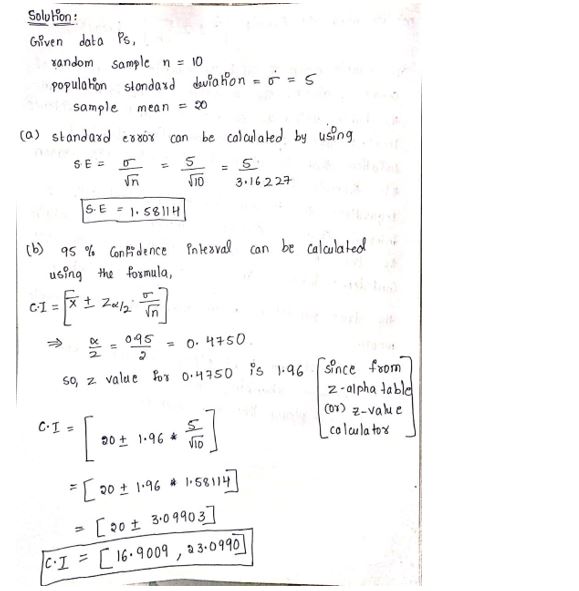 Solution:
Given data is,
random sample n = 10
population standard deviation = σ = 5
sample mean = 20
(a) standard error can be calculated by using
S.E = σ/√n = 5/√10 = 5/3.16227
S.E = 1.58114
(b) 95 % Confidence interval can be calculated
using the formula,
C.I = [x̄ ± Zα/2 · σ/√n]
⇒ α/2 = 0.95/2 = 0.4750
so, z value for 0.4750 is 1.96 [since from
z-alpha table
(or) z-value
calculator]
C.I = [20 ± 1.96 * 5/√10]
= [20 ± 1.96 * 1.58114]
= [20 ± 3.09903]
C.I = [16.9009, 23.0990]